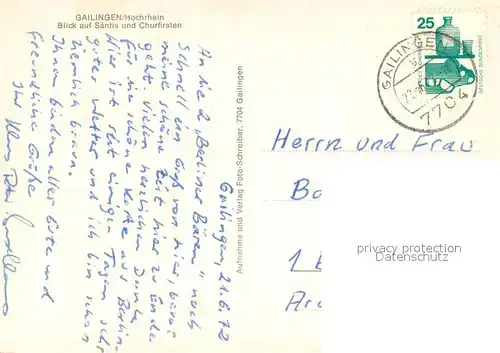 GAILINGEN/Hochrhein
Blick auf Säntis und Churfirsten
Gailingen, 21.6.72
An die 2 „Berliner Bären" noch
schnell ein Gruß von hier, bevor
meine schöne Zeit hier zu Ende
geht. Vielen herzlichen Dank
für die schöne Karte aus Berlin.
Hier ist seit einigen Tagen sehr
gutes Wetter und ich bin schon
ziemlich braun.
Ihnen beiden alles Gute und
freundliche Grüße
Ihr Klaus
Aufnahme und Verlag Foto-Schreiber, 7704 Gailingen
25
DEUTSCHE BUNDESPOST
GAILINGEN
7704
Herrn und Frau
Bo
1 B
privacy protection
Datenschutz